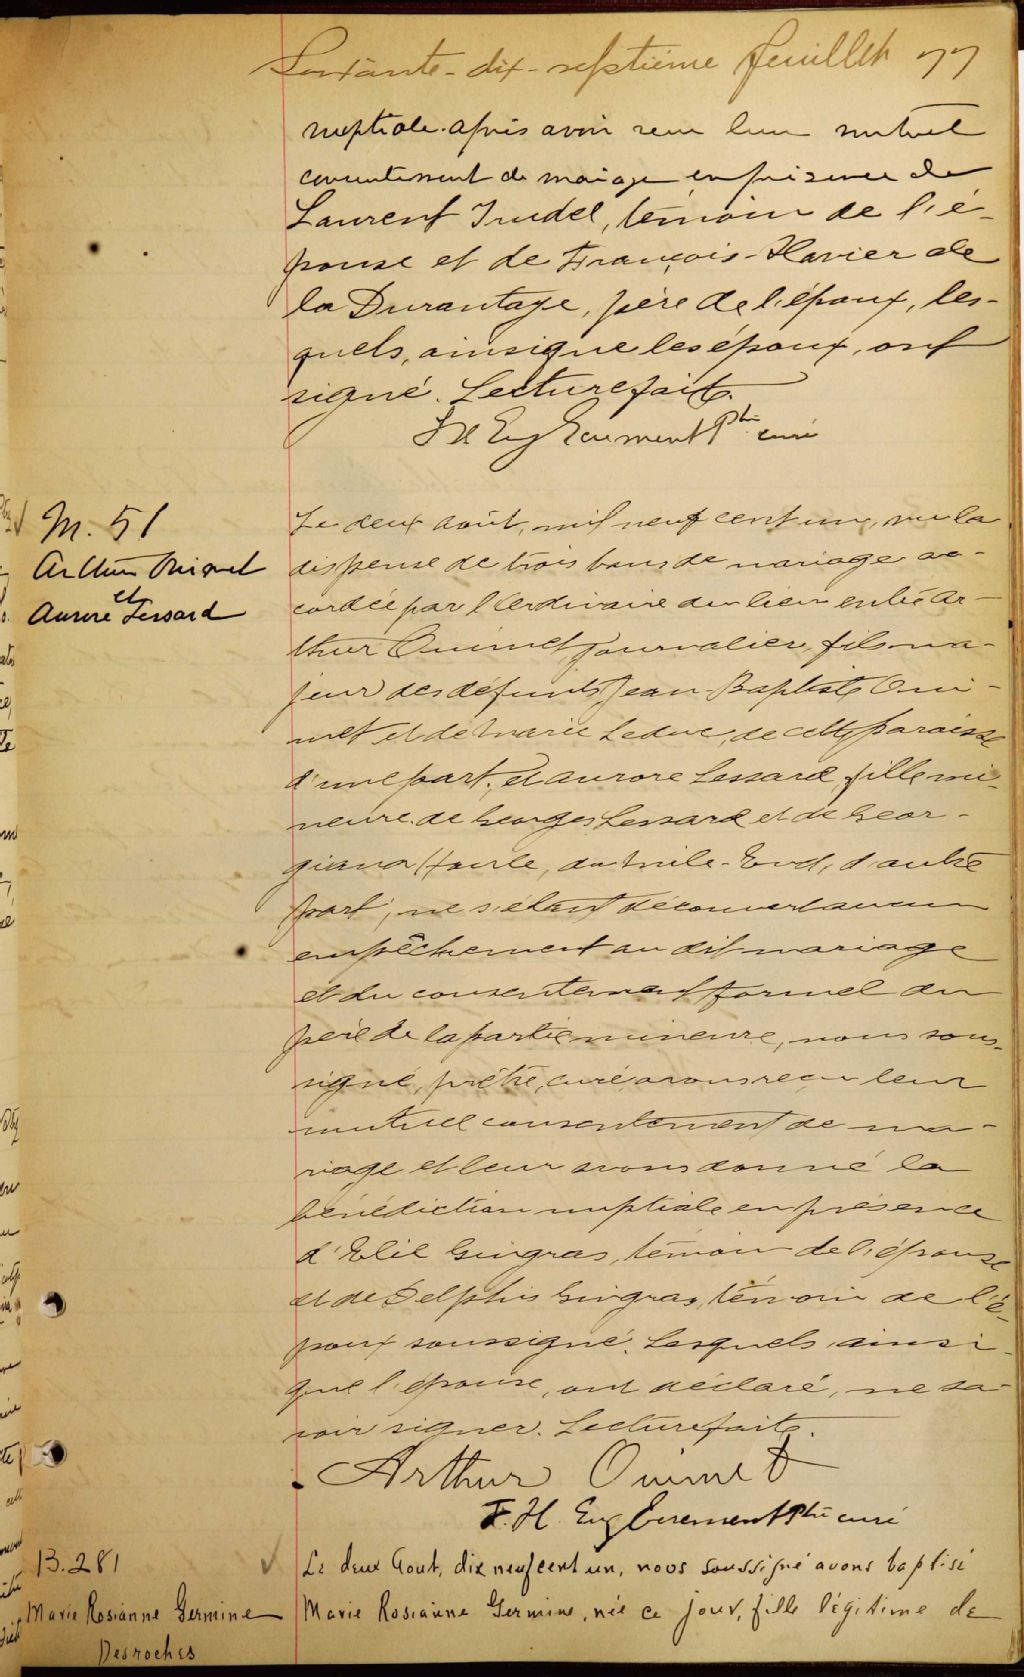 Soixante-dix-septième feuillet 77
nuptiale après avoir reçu leur mutuel
consentement de mariage en présence de
Laurent Trudel, témoin de l'é-
pouse et de François-Xavier de
la Durantaye, père de l'époux, les-
quels, ainsi que les époux, ont
signé. Lecture faite.
Ptre curé
M. 51
Arthur Ouimet
et
Aurore Lessard
Le deux août, mil neuf cent un, vu la
dispense de trois bans de mariage ac-
cordée par l'Ordinaire du lieu entre Ar-
thur Ouimet, journalier, fils ma-
jeur des défunts Jean-Baptiste Oui-
met et de Marie Leduc, de cette paroisse
d'une part, et Aurore Lessard, fille mi-
neure de Georges Lessard et de Geor-
giana, du Mile-End, d'autre
part, ne s'étant découvert aucun
empêchement au dit mariage
et du consentement formel du
père de la partie mineure, nous sous-
signé, prêtre, curé, avons reçu leur
mutuel consentement de ma-
riage et leur avons donné la
bénédiction nuptiale en présence
d'Elie Gingras, témoin de l'épouse
et de Delphis Gingras, témoin de l'é-
poux soussigné. Lesquels ainsi
que l'épouse, ont déclaré, ne sa-
voir signer. Lecture faite.
Arthur Ouimet
F. H. Eug Ptre curé
B. 281
Marie Rosianne Germine
Desroches
Le deux Aout, dix neuf cent un, nous soussigné avons baptisé
Marie Rosianne Germine, née ce jour, fille légitime de